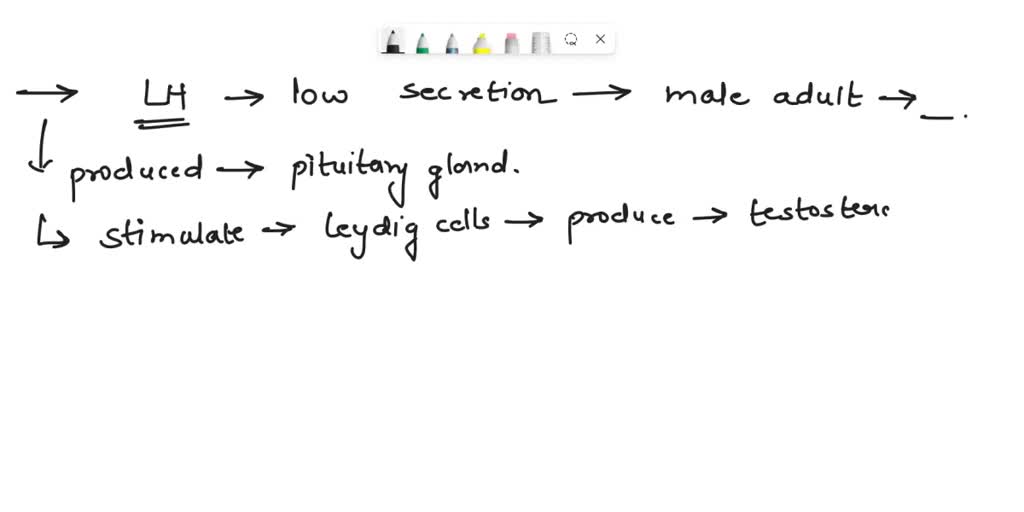 → LH → low secretion → male adult → _.
↓ produced → pituitary gland.
↳ stimulate → leydig cells → produce → testostero